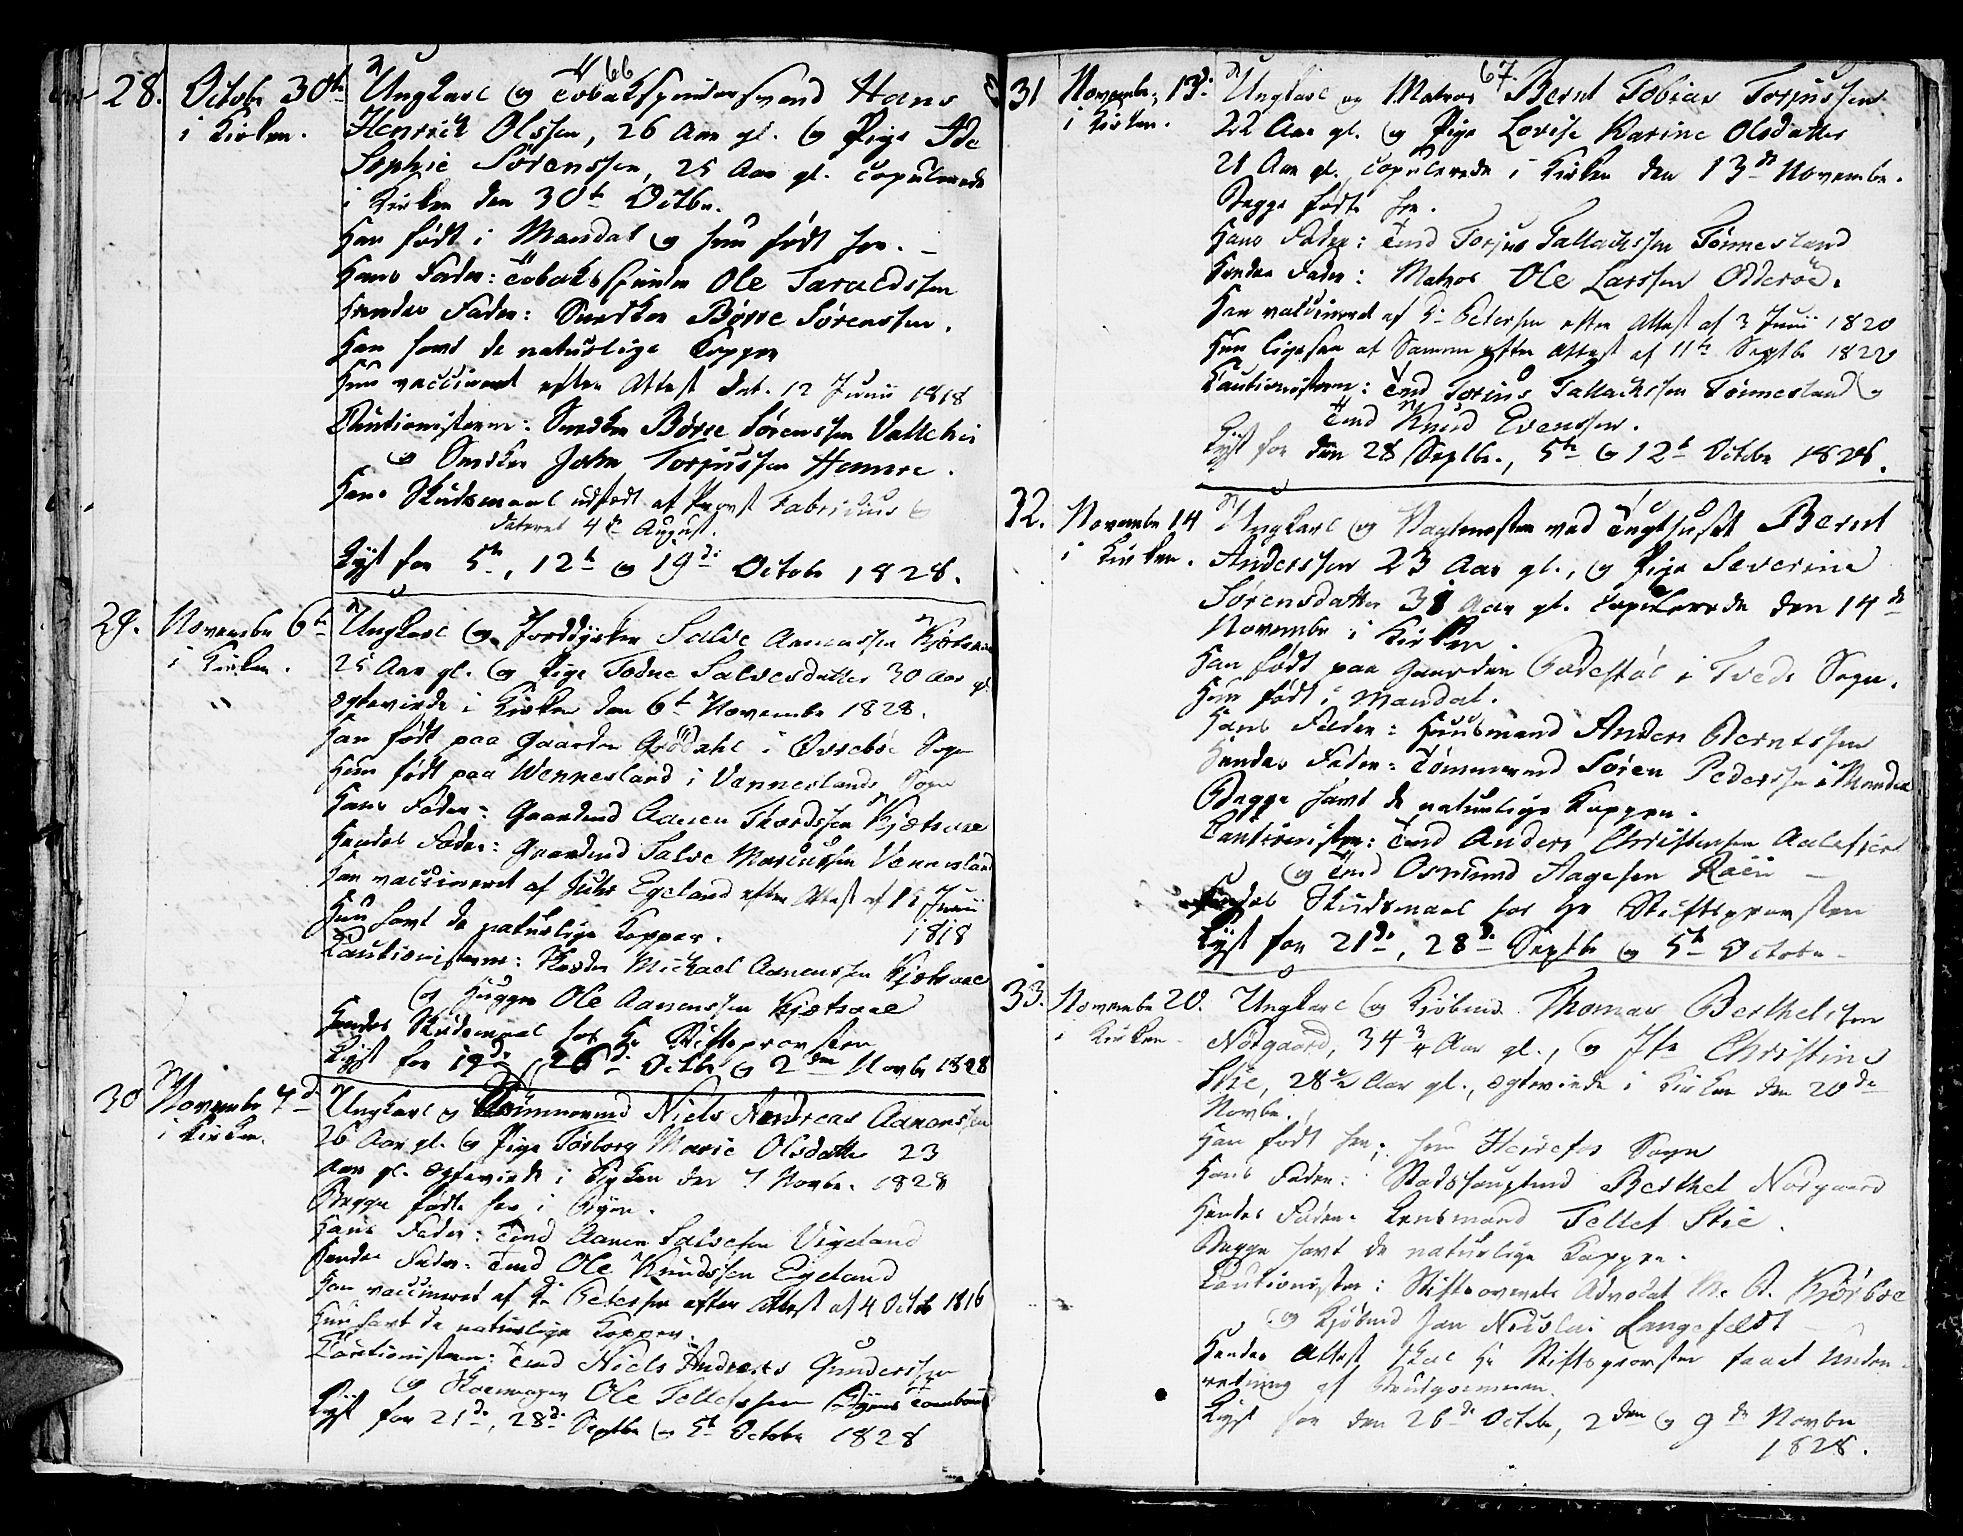 66
28. Octobr 30te Ungkarl og Tobakspindersvend Hans
i Kirken. Henrich Olssen, 26 Aar gl. og Pige Ide
Sophie Sørenssen, 25 Aar gl. copulerede
i Kirken den 30te Octbr.
Han født i Mandal og hun født her.
Hans Fader: Tobakspinder Ole Taraldssen
Hendes Fader: Snedker Børre Sørenssen.
Han havt de naturlige Kopper
Hun vaccineret efter Attest dat. 12 Junii 1818
Cautionisterne: Snedker Børre Sørenssen
og Snedker John Torjussen Hamre.
Hans Skudsmaal udstedt af Provst Fabricius
dateret 4de August.
Lyst for 5te, 12te og 19de Octobr 1828.
29. Novembr 6te Ungkarl og Jorddyrker Salve Aanenssen Kjetsaae
i Kirken. 25 Aar gl. og Pige Todne Salvesdatter 30 Aar gl.
ægteviede i Kirken den 6te Novembr 1828.
Han født paa Gaarden i Øvrebøe Sogn
Hun født paa Wennesland i Venneslands Sogn
Hans Fader: Gaardmd Aanen Thordssen Kjetsaae
Hendes Fader: Gaardmd Salve Marcussen Vennesland
Han vaccineret af Egeland efter Attest af Junii
Hun havt de naturlige Kopper. 1818
Cautionisterne: Michael Aanenssen Kjetsaae
og Ole Aanenssen Kjetsaae
Hendes Skudsmaal hos Hr Stiftsprovsten
Lyst for 19de, 26de Octbr og 2den Novbr 1828
30 Novembr 7de Ungkarl og Tømmermd Niels Andreas Aanenssen
i Kirken. 26 Aar gl. og Pige Torborg Marie Olsdatter 23
Aar gl. ægteviede i Kirken den 7 Novbr. 1828
Begge fødte her i Byen.
Hans Fader: Tmd Aanen Salvesen Vigeland
Hendes Fader: Tmd Ole Knudssen Egeland
Han vaccineret af Dr Petersen efter Attest af 4 Octbr 1816
Hun havt de naturlige Kopper.
Cautionisterne: Tmd Niels Andreas Gunderssen
og Ole Tellefssen
Lyst for 21de, 28de Septbr og 5te Octobr 1828
67.
31 Novembr. 13de Ungkarl og Matros Bernt Tobias Torjussen
i Kirken. 22 Aar gl. og Pige Lovise Karine Olsdatter
21 Aar gl. copulerede i Kirken den 13de Novembr.
Begge fødte her.
Hans Fader: Tmd Torjus Tallachssen Tønnesland
Hendes Fader: Matros Ole Larssen Odderøe.
Han vaccineret af Dr Petersen efter Attest af 3 Junii 1820
Hun ligesaa af Samme efter Attest af 11te Septbr 1822
Cautionisterne: Tmd Torjus Tallachssen Tønnesland og
Tmd Knud Evenssen.
Lyst for den 28 Septbr., 5te og 12te Octbr 1828.
32. Novembr 14 Ungkarl og Vagtmester ved Tugthuset Bernt
i Kirken. Anderssen 23 Aar gl., og Pige Severine
Sørensdatter 31 Aar gl. copulerede den 14de
Novembr i Kirken.
Han født paa Gaarden i Tveds Sogn.
Hun født i Mandal.
Hans Fader: Huusmand Anders Berntssen
Hendes Fader: Tømmermd Søren Pederssen i Mandal
Begge havt de naturlige Kopper.
Cautionister: Tmd Anders Christensen
og Tmd Osmund Aagesen
Hendes Skudsmaal hos Hr Stiftsprovsten
Lyst for 21de, 28de Septbr og 5te Octobr.
33. Novembr 20. Ungkarl og Kjøbmd Thomas Berthelssen
i Kirken. Nørgaard, 34 3/4 Aar gl., og Jfr Christine
Stie, 28 1/2 Aar gl., ægteviede i Kirken den 20de
Novbr.
Han født her; hun Sogn
Hans Fader: Stadshauptmd Berthel Nørgaard
Hendes Fader: Lensmand Tellef Stie.
Begge havt de naturlige Kopper.
Cautionister: Stiftsoverrets Advokat Kjørboe
og Kjøbmd Jan Nicolai Langefeldt
Hendes Attest skal Hr Stiftsprovsten faaet Underretning
af Brudgommen.
Lyst for den 26de Octbr, 2den og 9de Novbr
1828.